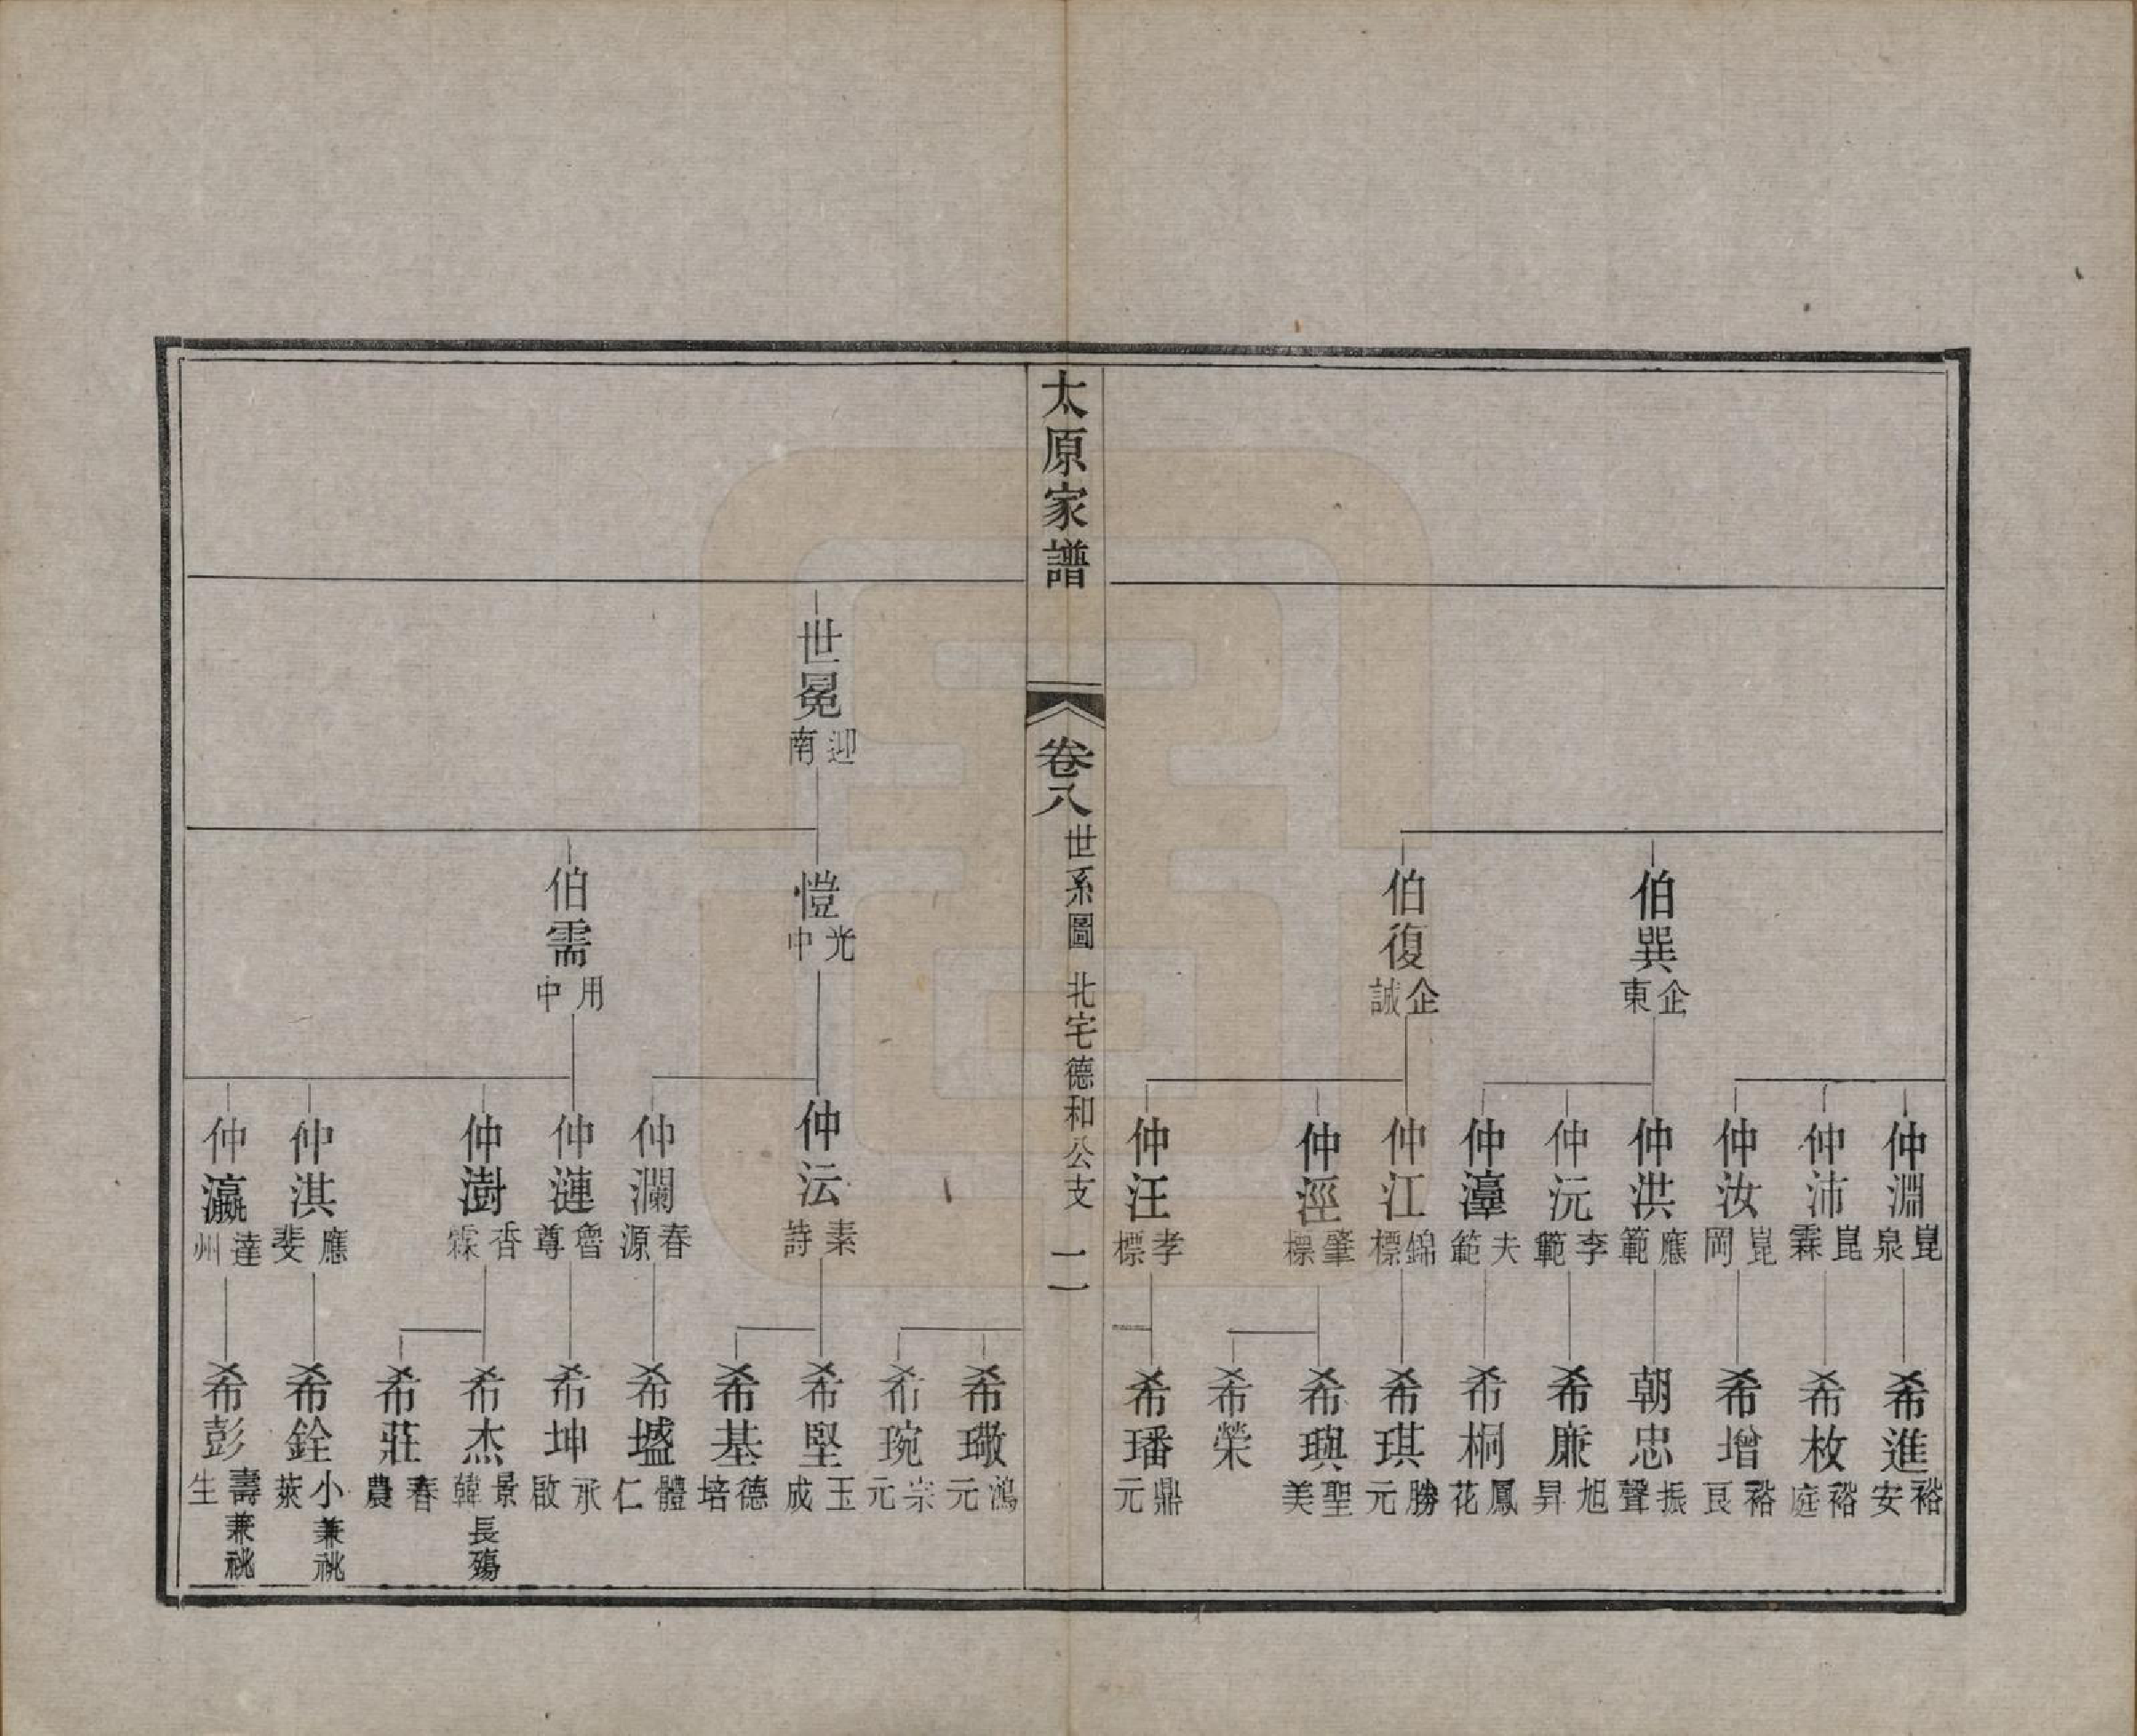 伯巽 企東
伯復 企誠
仲淵 崑泉
仲沛 崑霖
仲汝 崑岡
仲洪 應範
仲沅 李範
仲 夫範
仲江 錦標
仲涇 肇標
仲汪 孝標
希進 裕安
希枚 裕庭
希增 裕良
朝忠 振聲
希廉 旭昇
希桐 鳳花
希琪 勝元
希璵 聖美
希榮
希璠 鼎元
太原家譜
卷八
世系圖 北宅德和公支
二
世冕 迎南
愷 光中
伯需 用中
仲沄 素詩
仲瀾 春源
仲漣 魯尊
仲澍 香霖
仲淇 應斐
仲瀛 達州
希璥 鴻元
希琬 宗元
希堅 玉成
希基 德培
希 體仁
希坤 承啟
希杰 景韓 長殤
希莊 春農
希銓 小萊 兼祧
希彭 壽生 兼祧